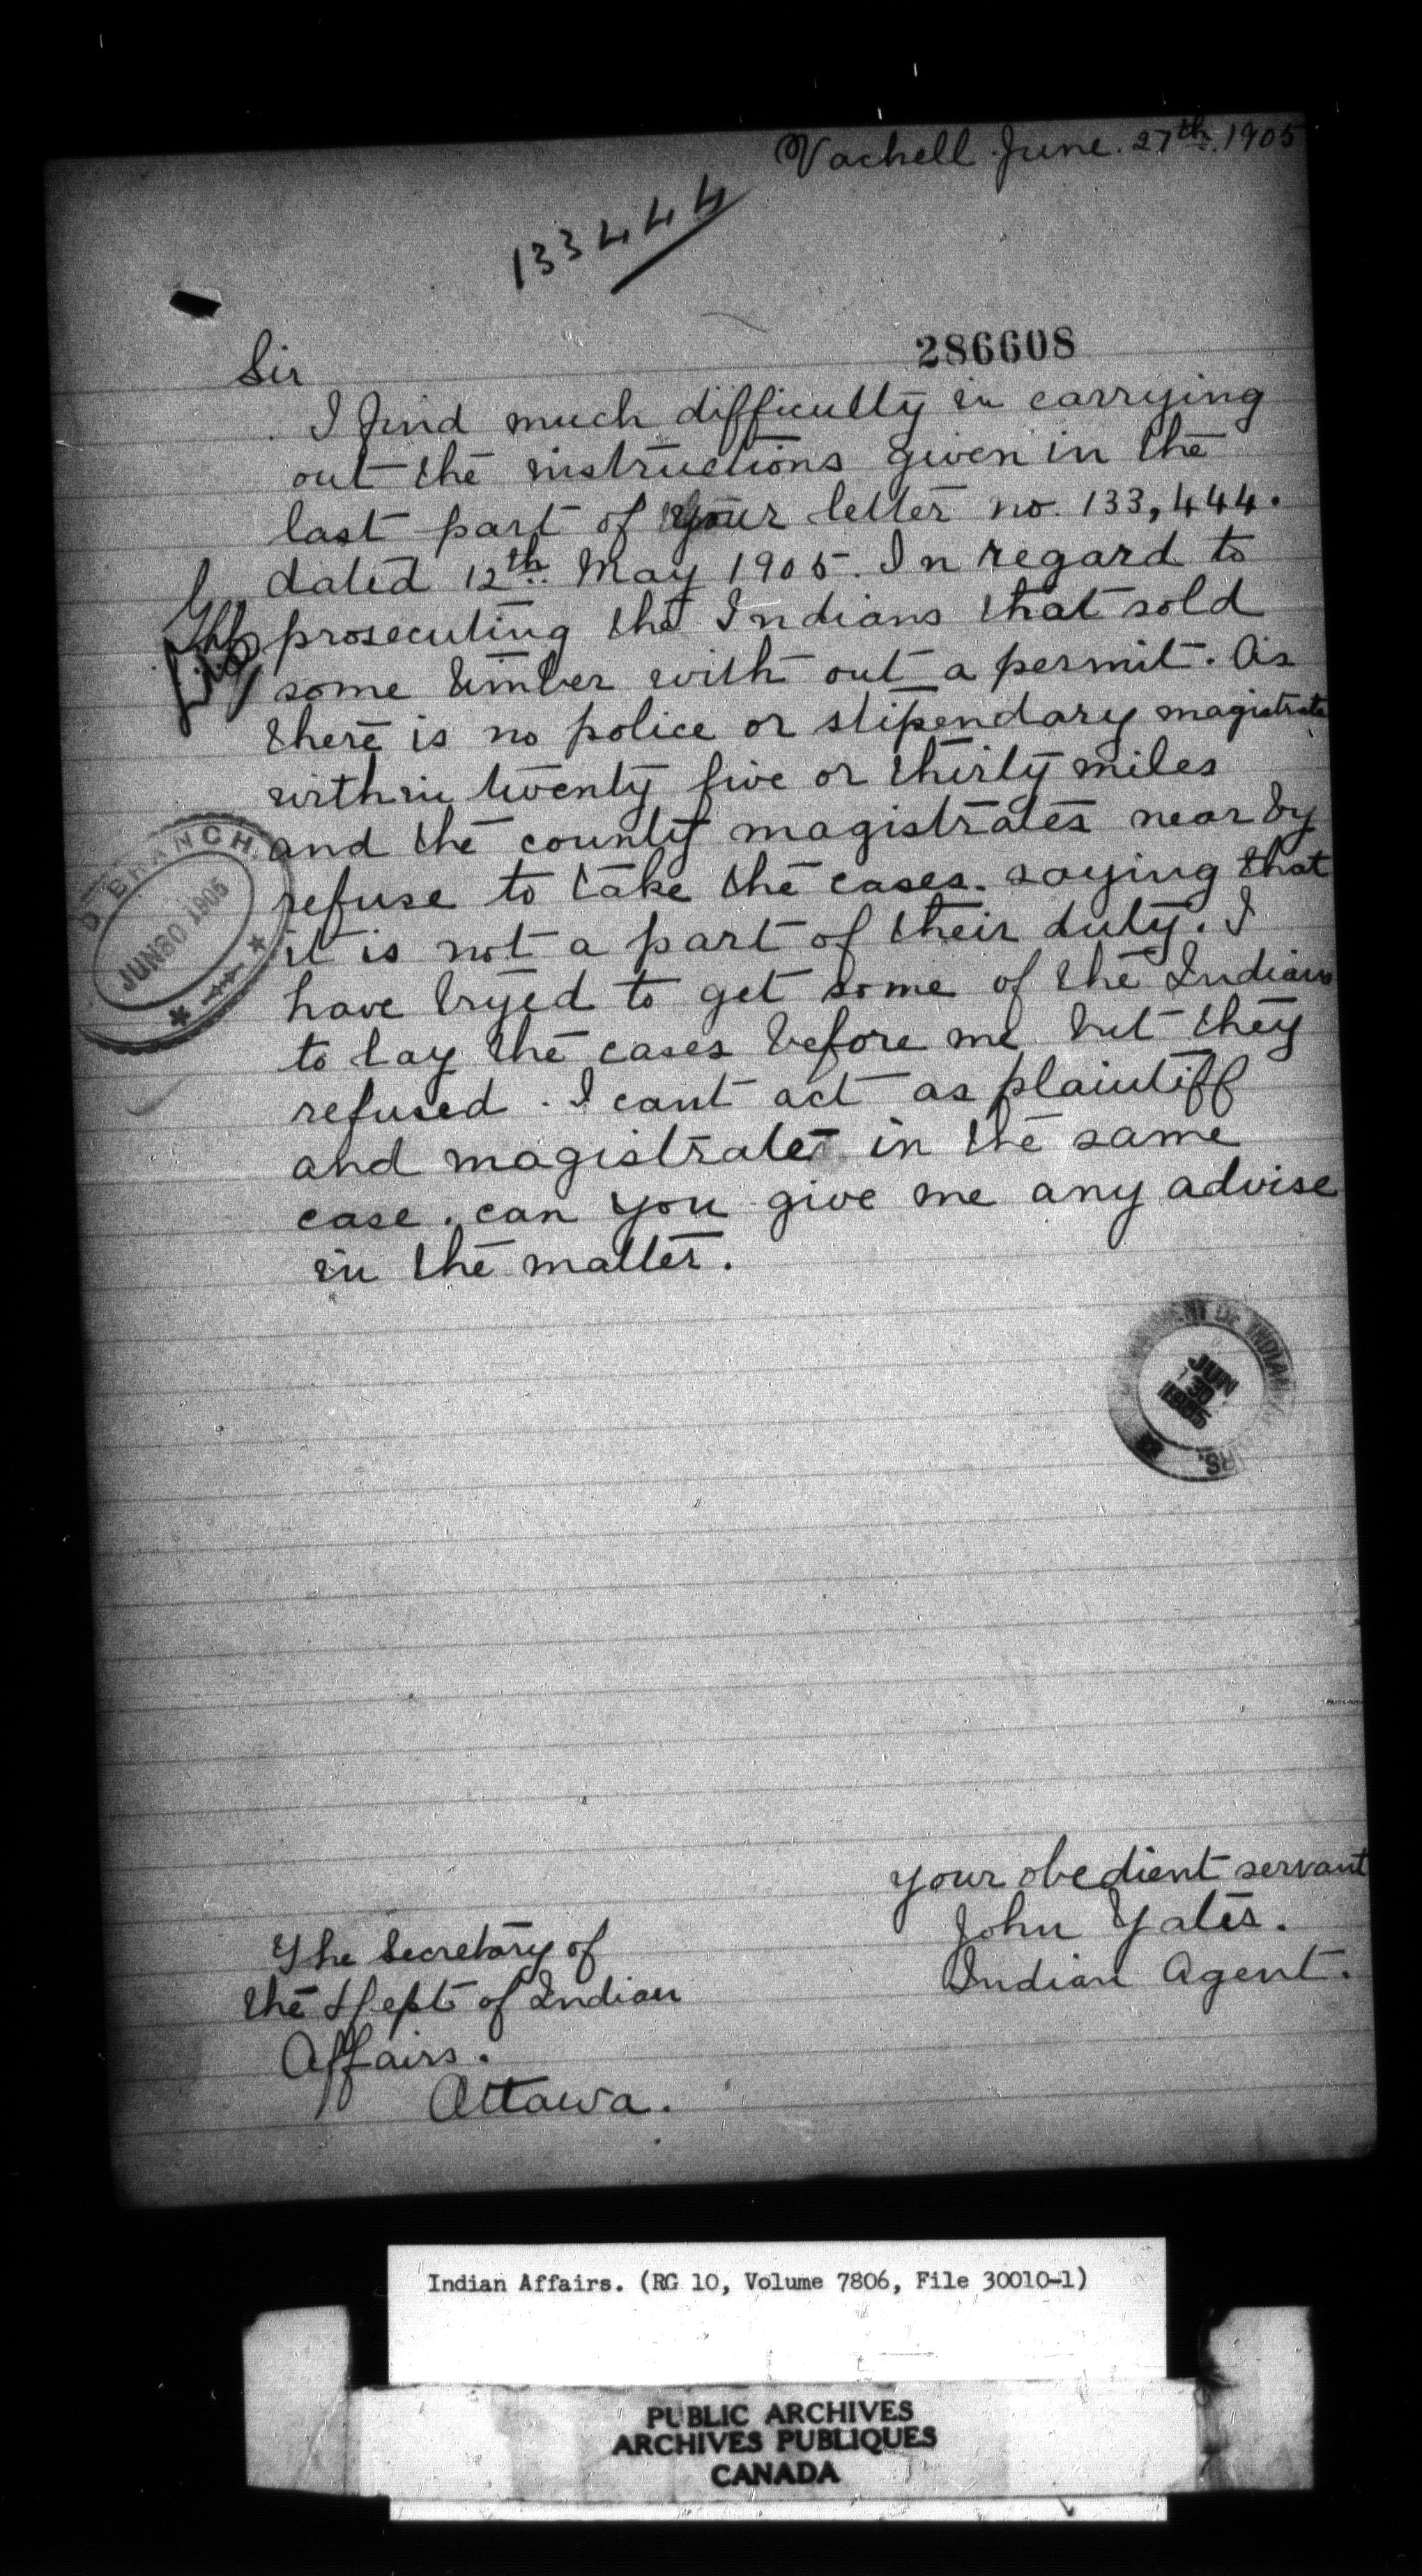 Vachell June. 27th. 1905
133444
286608
Sir
I find much difficulty in carrying
out the instructions given in the
last part of your letter no. 133,444.
dated 12th. May 1905. In regard to
prosecuting the Indians that sold
some timber with out a permit. As
there is no police or stipendary magistrate
within twenty five or thirty miles
and the county magistrates near by
refuse to take the cases. saying that
it is not a part of their duty. I
have tryed to get some of the Indians
to lay the cases before me but they
refused. I cant act as plaintiff
and magistrate in the same
case. can you give me any advise
in the matter.
D BRANCH.
JUN 30 1905
DEPARTMENT OF INDIAN AFFAIRS.
JUN
30
1905
your obedient servant
John Yates.
Indian Agent.
The Secretary of
the Dept of Indian
Affairs.
Ottawa.
Indian Affairs. (RG 10, Volume 7806, File 30010-1)
PUBLIC ARCHIVES
ARCHIVES PUBLIQUES
CANADA